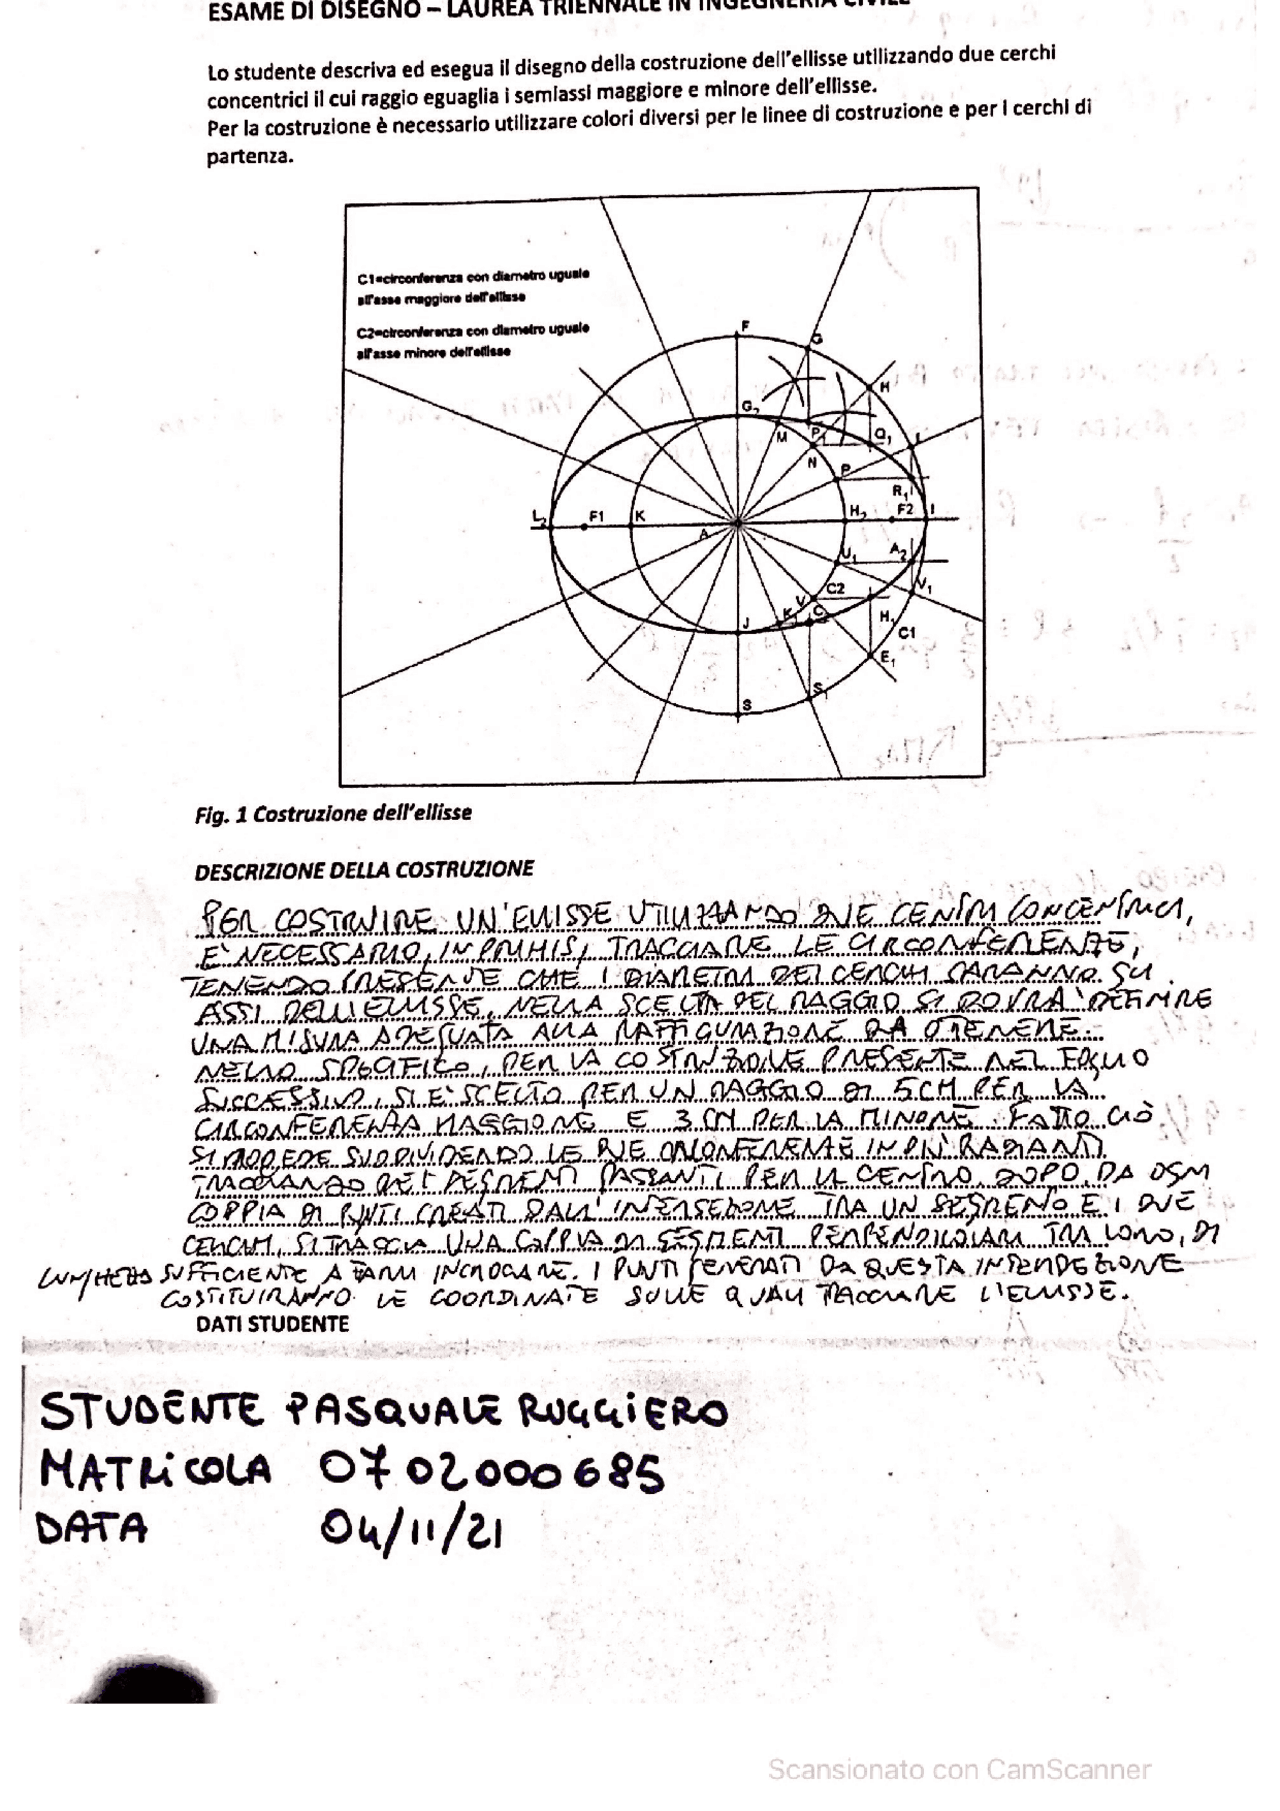 ESAME DI DISEGNO – LAUREA TRIENNALE IN INGEGNERIA CIVILE
Lo studente descriva ed esegua il disegno della costruzione dell'ellisse utilizzando due cerchi
concentrici il cui raggio eguaglia i semiassi maggiore e minore dell'ellisse.
Per la costruzione è necessario utilizzare colori diversi per le linee di costruzione e per i cerchi di
partenza.
C1=circonferenza con diametro uguale
all'asse maggiore dell'ellisse
C2=circonferenza con diametro uguale
all'asse minore dell'ellisse
F
G
H
G2
M
P1
Q1
N
P
R1
L2
F1
K
A
H2
F2
I
U1
A2
V1
V
C2
K1
H1
C1
J
E1
S1
S
Fig. 1 Costruzione dell'ellisse
DESCRIZIONE DELLA COSTRUZIONE
PER COSTRUIRE UN'ELLISSE UTILIZZANDO DUE CENTRI CONCENTRICI,
E' NECESSARIO, IN PRIMIS, TRACCIARE LE CIRCONFERENZE,
TENENDO PRESENTE CHE I DIAMETRI DEI CERCHI SARANNO GLI
ASSI DELL'ELLISSE. NELLA SCELTA DEL RAGGIO SI DOVRA' DEFINIRE
UNA MISURA ADEGUATA ALLA RAFFIGURAZIONE DA OTTENERE.
NELLO SPECIFICO, PER LA COSTRUZIONE PRESENTE NEL FOGLIO
SUCCESSIVO, SI E' SCELTO PER UN RAGGIO DI 5CM PER LA
CIRCONFERENZA MAGGIORE E 3 CM PER LA MINORE. FATTO CIÒ
SI PROCEDE SUDDIVIDENDO LE DUE CIRCONFERENZE IN PIU' RADIANTI
TRACCIANDO DEI SEGMENTI PASSANTI PER IL CENTRO. DOPO, DA OGNI
COPPIA DI PUNTI CREATI DALL' INTERSEZIONE TRA UN SEGMENTO E I DUE
CERCHI, SI TRACCIA UNA COPPIA DI SEGMENTI PERPENDICOLARI TRA LORO, DI
LUNGHEZZA SUFFICIENTE A FARLI INCROCIARE. I PUNTI GENERATI DA QUESTA INTERSEZIONE
COSTITUIRANNO LE COORDINATE SULLE QUALI TRACCIARE L'ELLISSE.
DATI STUDENTE
STUDENTE PASQUALE RUGGIERO
MATRICOLA 0702000685
DATA 04/11/21
Scansionato con CamScanner